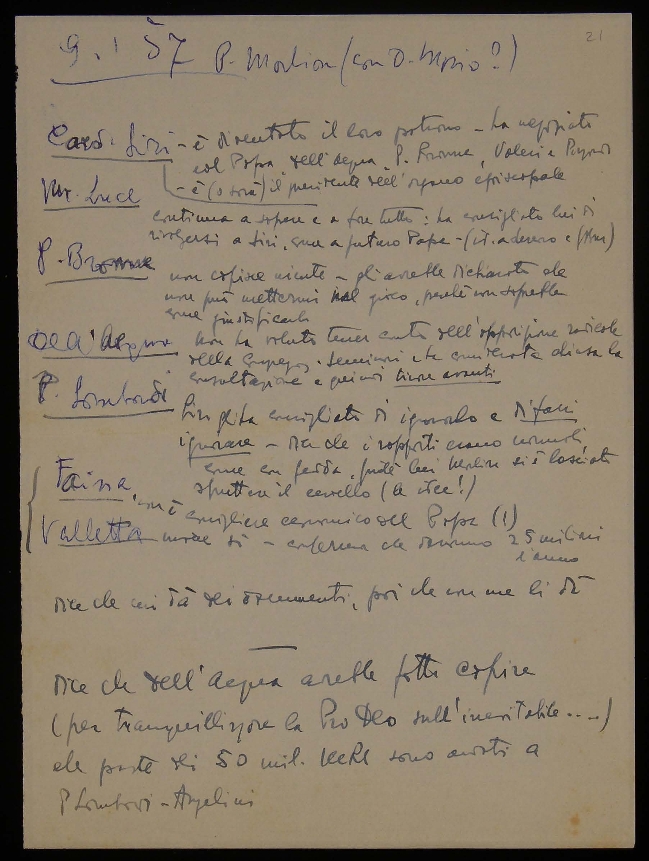 21
9.1 57 P. Morlion (con D. Morio?)
Card. Siri - è diventato il loro patrono - ha negoziato
col Papa, dell'Acqua, P. Browne, Valeri e
- è (o sarà) il presidente dell'organo episcopale
continua a sapere e a fare tutto: ha consigliato lui di
rivolgersi a Siri, come a futuro Papa -
P. Browne non capisce niente - gli avrebbe dichiarato che
non può mettermi nel gioco, perché non saprebbe
come giustificarlo
Dell'Acqua Non ha voluto tener conto dell'opposizione radicale
della Congregaz. Seminari che considerata chiusa la
consultazione e quindi tirare avanti
P. Lombardi Siri gli ha consigliato di ignorarlo e di farsi
ignorare - dice che i rapporti erano normali
come con Gedda, poiché lui Morlion si è lasciato
sfruttare il cervello (le idee!)
Faina, non è consigliere economico del Papa (!)
Valletta invece sì - conferma che daranno 25 milioni
l'anno
dice che mi dà dei documenti, poi che non me li dà
dice che dell'Acqua avrebbe fatto capire
(per tranquillizzare la Pro Deo sull'inevitabile....)
che parte dei 50 mil. sono andati a
P Lombardi - Angelini